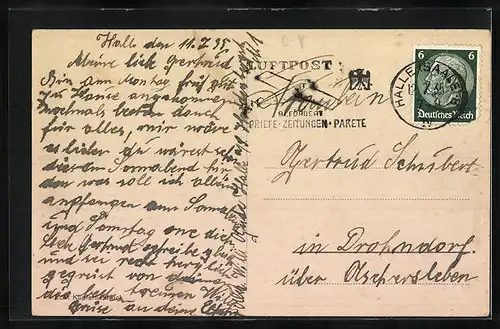 Halle den 11.7.35
Meine lieb Gertrud
Bin am Montag früh gut
zu Hause angekommen
nochmals besten dank
für alles, mir wäre
es lieber du wärest schon
diesen Sonnabend hier
den was soll ich allein
anfangen am Sonnabend
und Sonntag one dich
Lieb Gertrud schreibe gleich
und sei recht herzlich
gegrüst von
treuen
Grüse an deine
LUFTPOST
BEFÖRDERT
BRIEFE·ZEITUNGEN·PAKETE
HALLE (SAALE)
6 6
Deutsches Reich
Fräulein
Gertrud Schubert
in Drohndorf
über Aschersleben